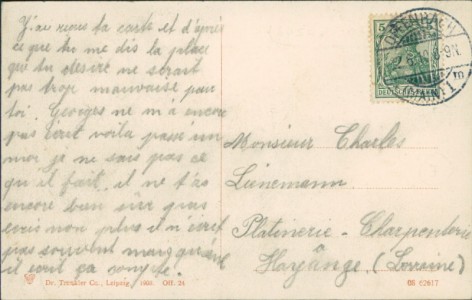 J'ai reçu ta carte et d'après
ce que tu me dis la place
que tu désire ne serait
pas trop mauvaise pour
toi. Georges ne m'a encore
pas écrit voila passé un
moi je ne sais pas ce
qu'il fait, il ne t'as
encore bien sûr pas
écris non plus il n'écrit
pas souvent mais quand
il écrit ça compte.
Monsieur Charles
Lünemann
Platinerie - Charpenterie
Hayange (Lorraine)
5
OFFENBACH
(MAIN) 1
8-9N.
m
Dr. Trenkler Co., Leipzig, 1906. Off. 24
66 62617